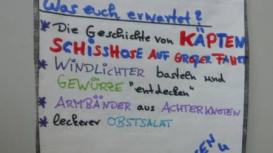 Was euch erwartet?
* Die Geschichte von KÄPTEN
SCHISSHOSE AUF GROßER FAHRT
* WINDLICHTER basteln und
GEWÜRZE "entdecken"
* ARMBÄNDER aus ACHTERKNOTEN
* leckerer OBSTSALAT